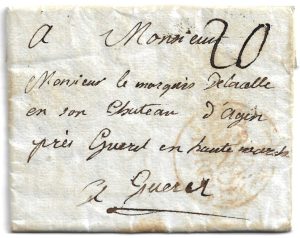 A Monsieur 20
Monsieur le marquis Delacelle
en son Chateau d'Ajin
près Gueret en haute marche
A Gueret